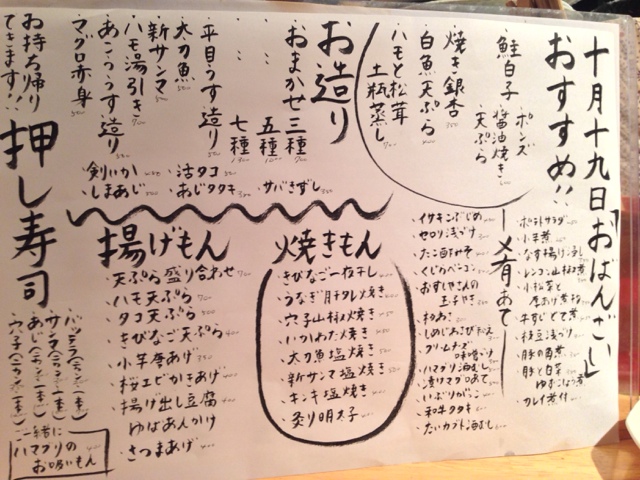 十月十九日「おばんざい」
おすすめ!!
・鮭白子 ポンズ
醤油焼き
天ぷら
・焼き銀杏
・白魚天ぷら
・ハモと松茸
土瓶蒸し
お造り
・おまかせ三種
・〃 五種
・〃 七種
・平目うす造り
・太刀魚
・新サンマ
・ハモ湯引き
・あこううす造り
・マグロ赤身
・サバきずし
・活タコ
・あじタタキ
・剣いか
・しまあじ
お持ち帰り
できます!!
押し寿司
・バッテラ
・サンマ
・あじ
・穴子
ご一緒に
ハマグリの
お吸いもん
揚げもん
・天ぷら盛り合わせ
・ハモ天ぷら
・タコ天ぷら
・きびなご天ぷら
・小芋唐あげ
・桜エビかきあげ
・揚げ出し豆腐
ゆばあんかけ
・さつまあげ
焼きもん
・きびなご一夜干し
・うなぎ肝タレ焼き
・穴子山椒焼き
・いかわた焼き
・太刀魚塩焼き
・新サンマ塩焼き
・キンキ塩焼き
・炙り明太子
・セロリ浅づけ
・たこ酢みそ
・くじらベーコン
・クリームチーズ
味噌づけ
・ハマグリ酒むし
・漬けマグロあて
・いぶりがっこ
・和牛タタキ
・たいカブト酒むし
・ポテトサラダ
・小芋煮
・小松菜と
厚あげ煮物
・牛すじとて煮
・枝豆浅づけ
・豚の角煮
・豚と白菜
・カレイ煮付